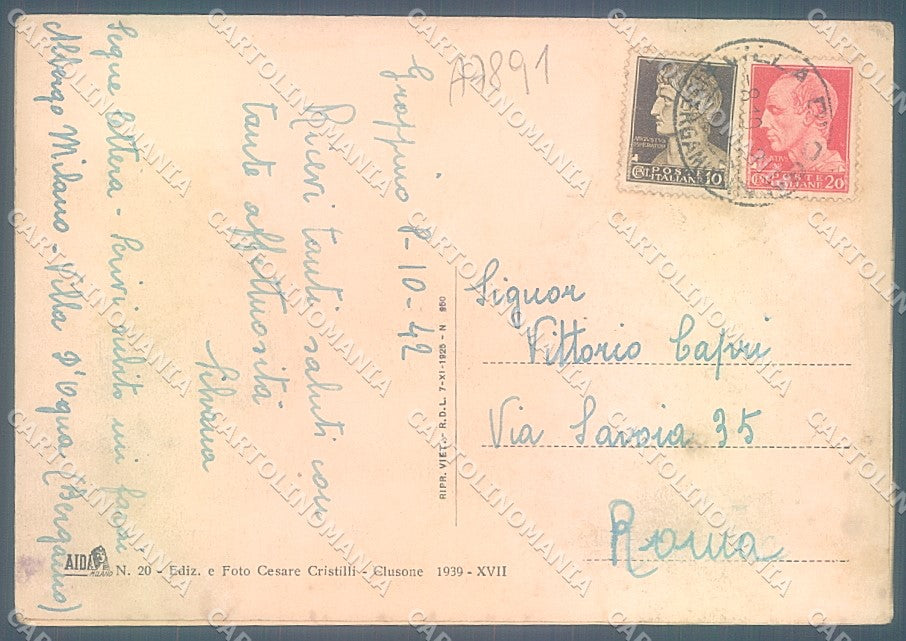 A7891
VILLA D'O
BERGAMO
POSTE
ITALIANE 10
POSTE
ITALIANE 20
Groppino 8-10-42
Ricevi tanti saluti con
tante affettuosità
Silvana
Segue lettera - Scrivi subito mi
Albergo Milano - Villa d'Ogna (Bergamo)
Signor
Vittorio Capri
Via Savoia 35
Roma
RIPR. VIET. - R.D.L. 7-XI-1925 - N 950
AIDA
MILANO
N. 20 - Ediz. e Foto Cesare Cristilli - Clusone 1939 - XVII
CARTOLINOMANIA